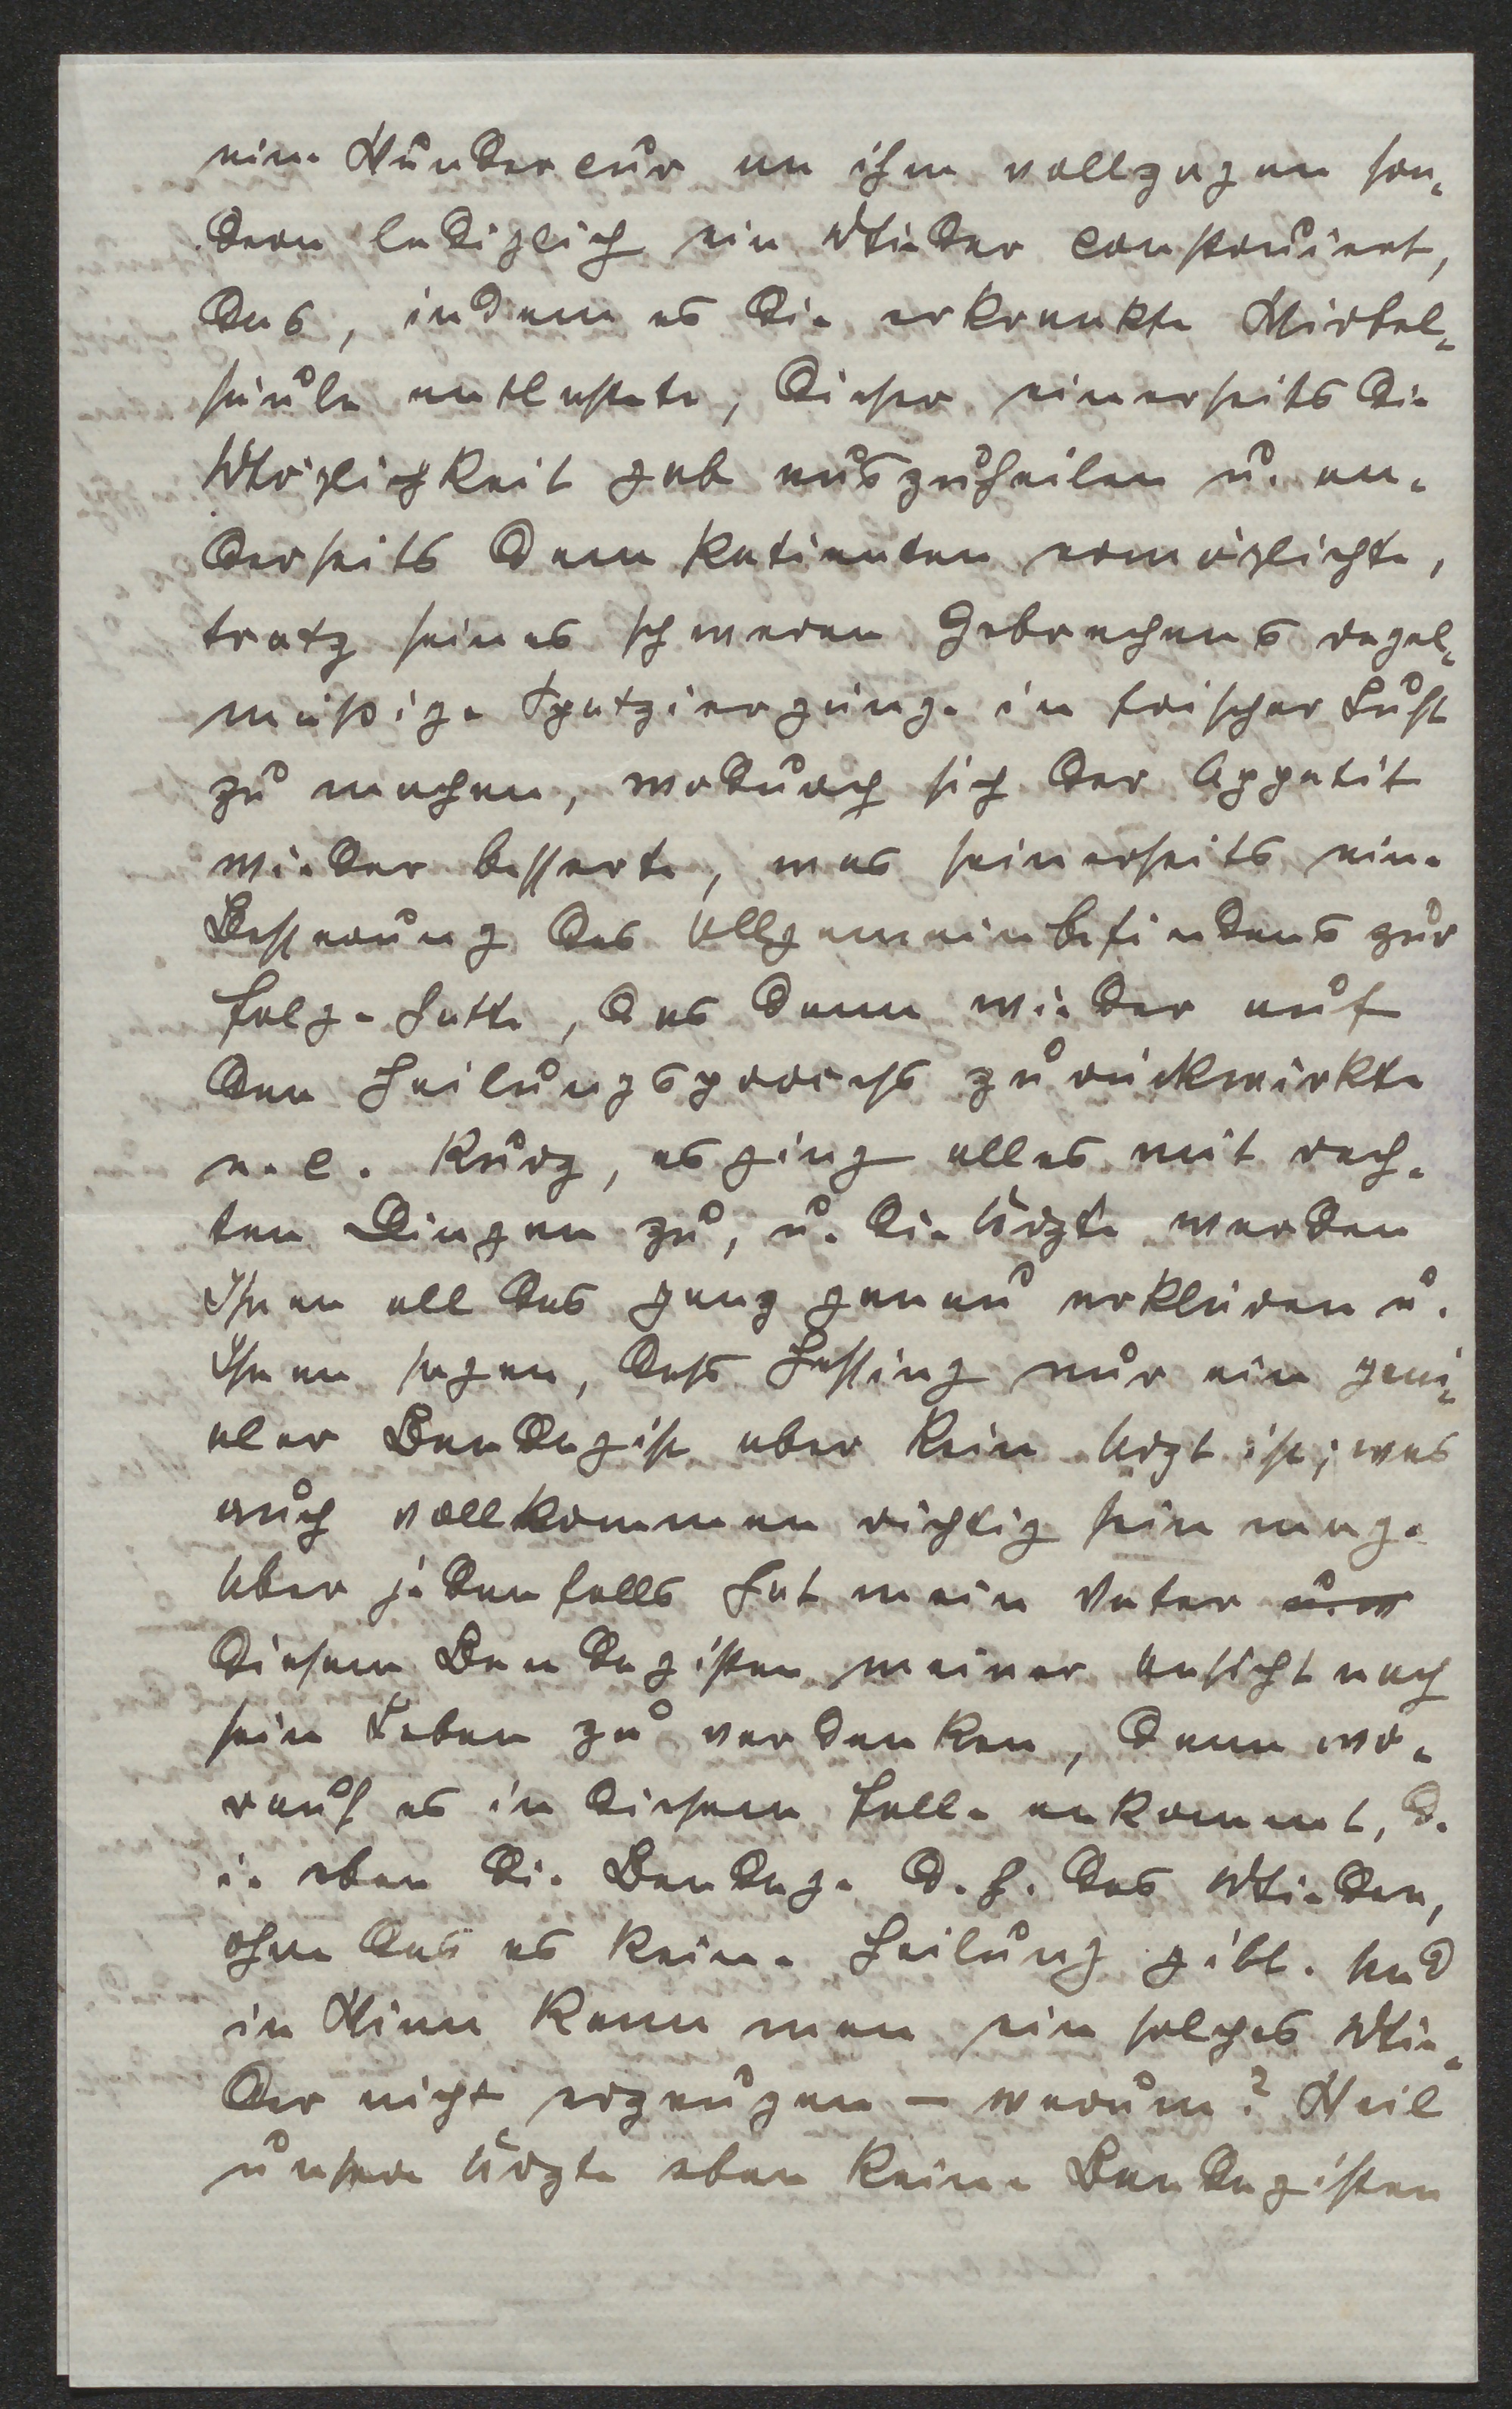 eine Wundercur an ihm vollzogen son-
dern lediglich ein Mieder construiert,
das, indem es die erkrankte Wirbel-
säule entlastete, dieser einerseits die
Möglichkeit gab auszuheilen u. an-
derseits dem Patienten ermöglichte,
trotz seines schweren Gebrechens regel-
mäßige Spatziergänge in frischer Luft
zu machen, wodurch sich der Appetit
wieder besserte, was seinerseits eine
Besserung des Allgemeinbefindens zur
Folge hatte, das dann wieder auf
den Heilungsprocess zurückwirkte
e. c. Kurz, es ging alles mit rech-
ten Dingen zu, u. die Ärzte werden
Ihnen all das ganz genau erklären u.
Ihnen sagen, dass Hessing nur ein geni-
aler Bandagist aber kein Arzt ist; was
auch vollkommen richtig sein mag.
Aber jedenfalls hat mein Vater
diesem Bandagisten meiner Ansicht nach
sein Leben zu verdanken, denn wo-
rauf es in diesem Falle ankommt, d.
i. eben die Bandage d. h. das Mieder,
ohne das es keine Heilung gibt. Und
in Wien kann man ein solches Mie-
der nicht erzeugen – warum? Weil
unsere Ärzte eben keine Bandagisten